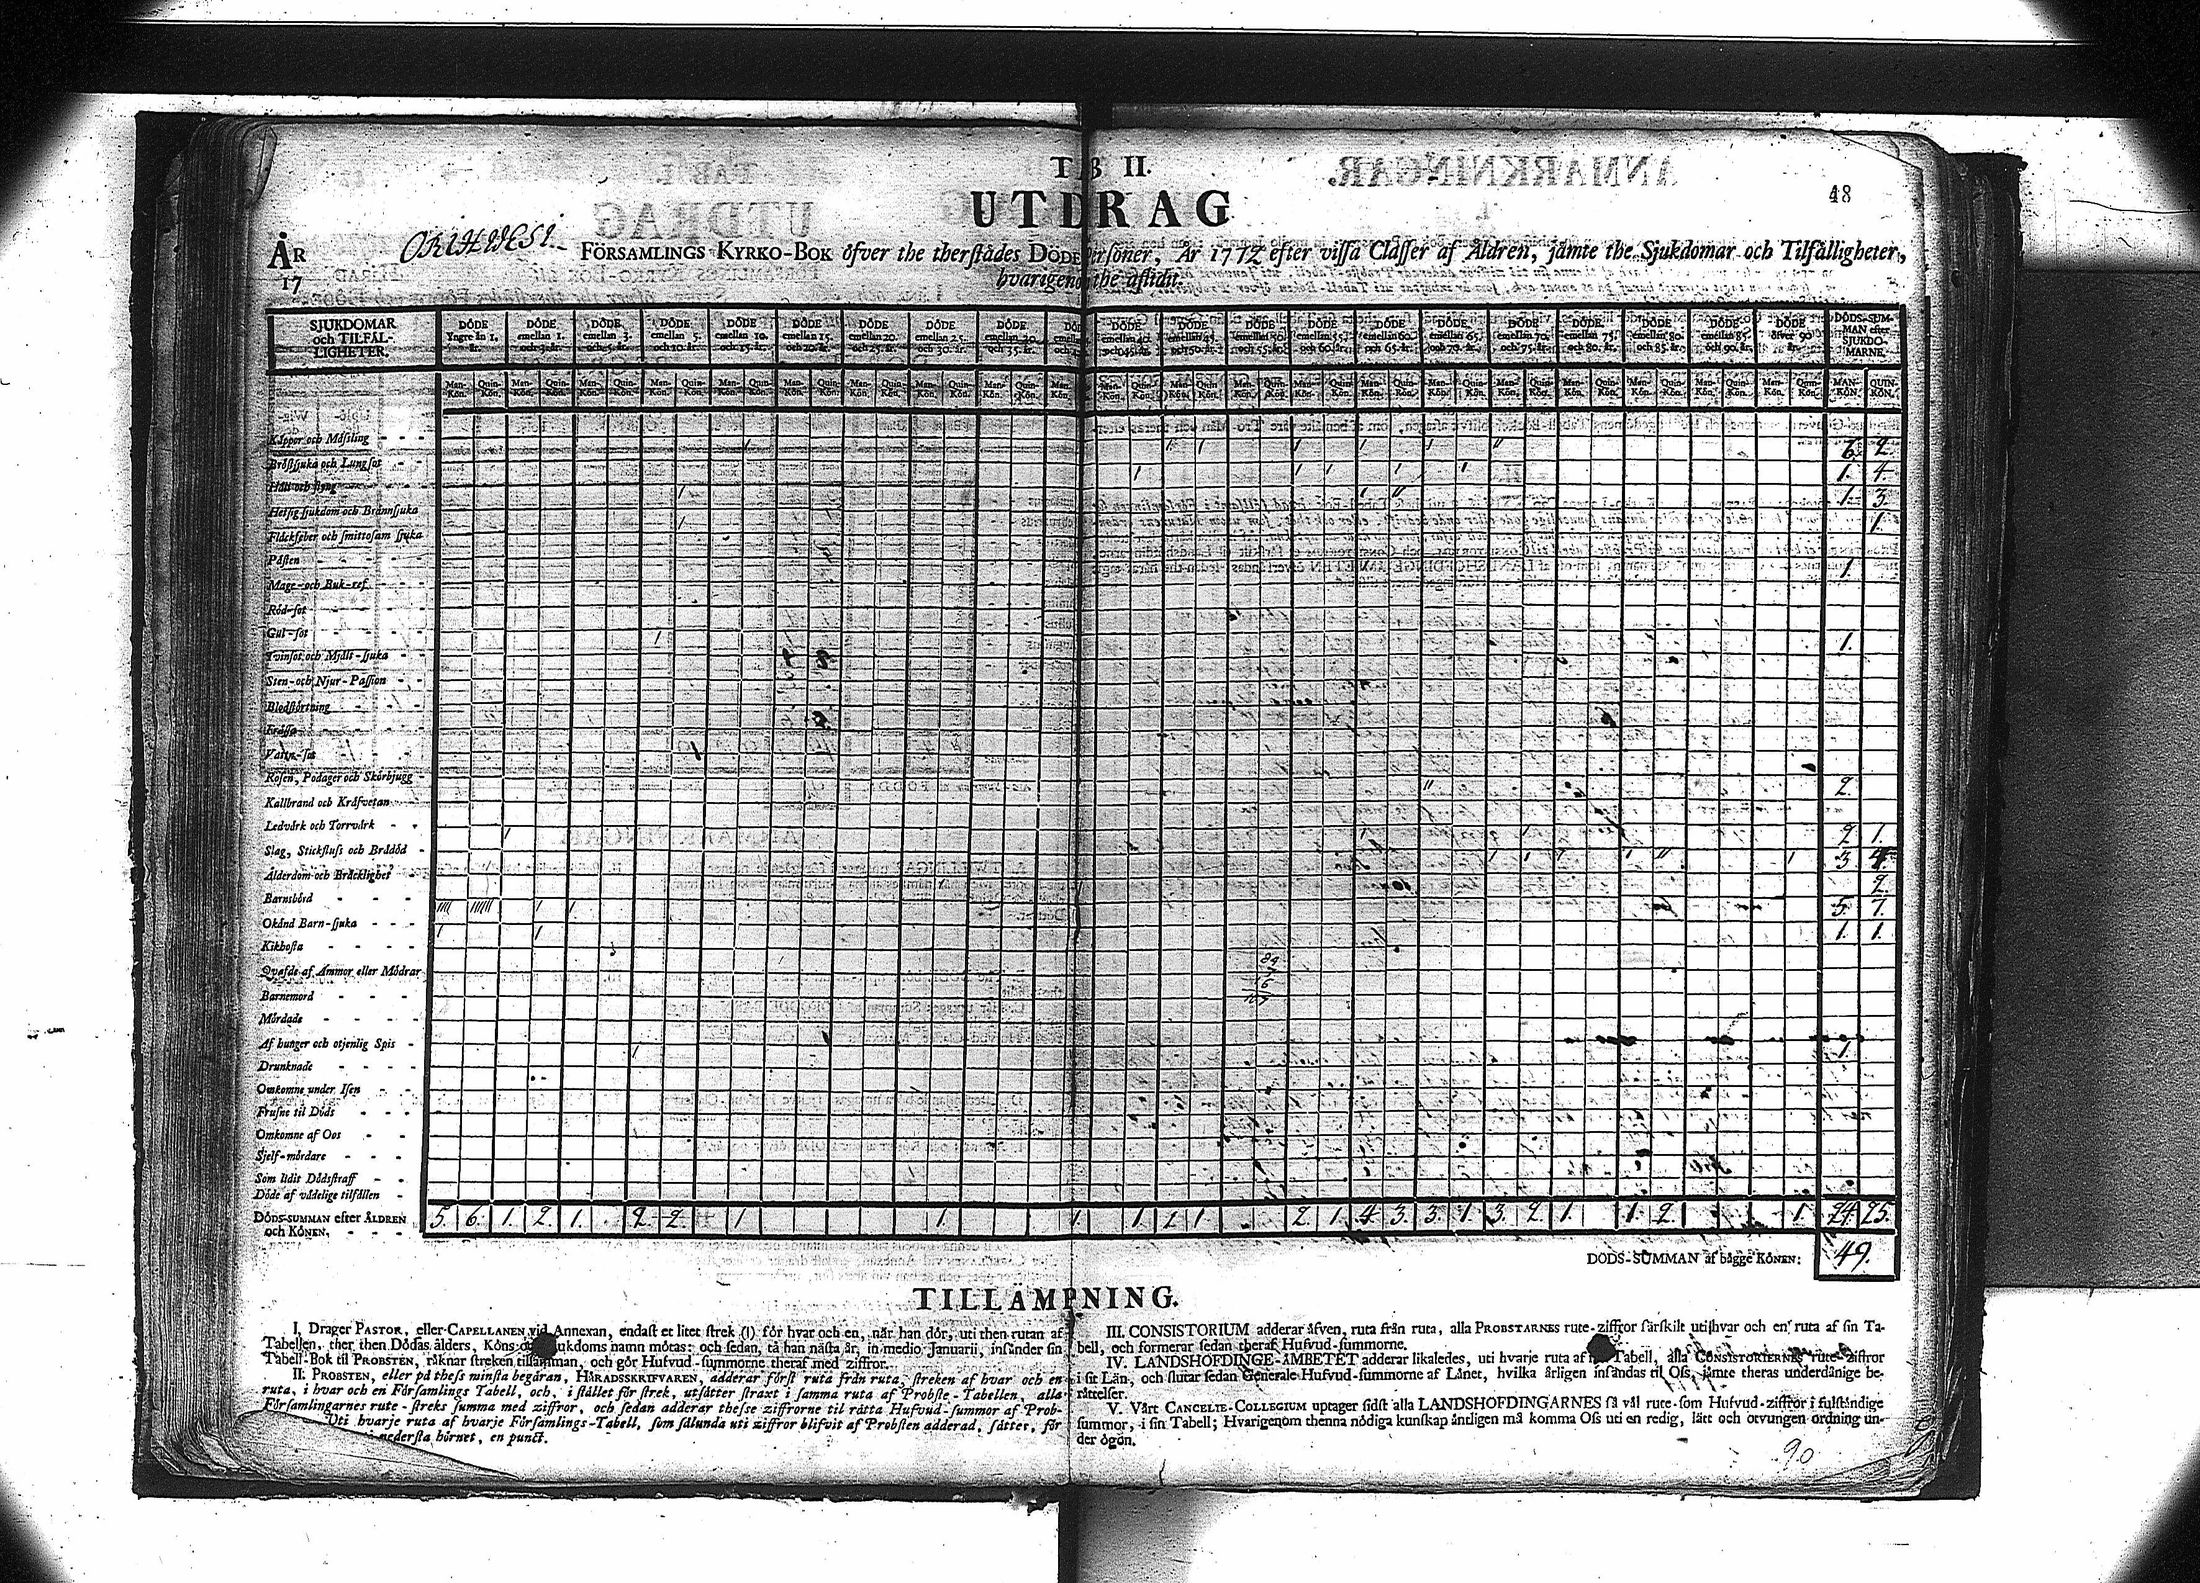 TAB II.
48
UTDRAG
ÅR ORIHVESI FÖRSAMLINGS KYRKO-BOK öfver the therstådes DÖDE Personer, År 1772 efter vissa Classer af Åldren, jämte the Sjukdomar och Tilfälligheter,
17 hvarigenom the aflidit.
SJUKDOMAR och TILFÄLLIGHETER.
DÖDE Yngre än 1. år.
DÖDE emellan 1. och 3. år.
DÖDE emellan 3. och 5. år.
DÖDE emellan 5. och 10. år.
DÖDE emellan 10. och 15. år.
DÖDE emellan 15. och 20. år.
DÖDE emellan 20. och 25. år.
DÖDE emellan 25. och 30. år.
DÖDE emellan 30. och 35. år.
DÖDE emellan 40. och 45. år.
DÖDE emellan 45. och 50. år.
DÖDE emellan 50. och 55. år.
DÖDE emellan 55. och 60. år.
DÖDE emellan 60. och 65. år.
DÖDE emellan 65. och 70. år.
DÖDE emellan 70. och 75. år.
DÖDE emellan 75. och 80. år.
DÖDE emellan 80. och 85. år.
DÖDE emellan 85. och 90. år.
DÖDE öfver 90 år.
DÖDS-SUMMAN efter SJUKDOMARNE.
Man-Kön. Quin-Kön.
Koppor och Mässling
Bröstsjuka och Lungsot 6. 2.
Håll och styng 1. 4.
Hetsig sjukdom och Brännsjuka 1. 3.
Fläckfeber och smittosam sjuka 1.
Påsten
Mage- och Buk-ref 1.
Röd-sot
Gul-sot
Tvinsot och Mjält-sjuka 1.
Sten- och Njur-Passion
Blodstörtning
Frässa
Vattu-sot
Rosen, Podager och Skörbjugg 2.
Kallbrand och Kräfvetan
Ledvärk och Torrvärk 2. 1.
Slag, Stickfluss och Brådöd 3. 4
Ålderdom och Bräcklighet 2.
Barnsbörd 5. 7.
Okänd Barn-sjuka 1. 1.
Kikhosta
Qvafde af Ammor eller Mödrar
Barnemord
Mördade
Af hunger och otjenlig Spis 1.
Drunknade
Omkomne under Isen
Frusne til Döds
Omkomne af Oos
Sjelf-mördare
Som lidit Dödsstraff
Döde af vådelige tilfällen
DÖDS-SUMMAN efter ÅLDREN och KÖNEN. 5. 6. 1. 2. 1. 2. 2. 1 1. 1. 1. 2 1. 2. 1. 4. 3. 3. 1. 3. 2. 1. 1. 2. 1. 24. 25.
DÖDS-SUMMAN af bägge KÖNEN: 49.
TILLÄMPNING.
I. Drager PASTOR, eller CAPELLANEN vid Annexan, endast et litet strek (I) för hvar och en, när han dör, uti then rutan af
Tabellen, ther then Dödas ålders, Köns och Sjukdoms namn mötas: och sedan, tå han nästa år, in medio Januarii, insänder sin
Tabell-Bok til PROBSTEN, räknar streken tilsamman, och gör Hufvud-summorne theraf med ziffror.
II. PROBSTEN, eller på thess minsta begäran, HÄRADSSKRIFVAREN, adderar först ruta från ruta, streken af hvar och en
ruta, i hvar och en Församlings Tabell, och, i stället för strek, utsätter straxt i samma ruta af Probste-Tabellen, alla
Församlingarnes rute-streks summa med ziffror, och sedan adderar thesse ziffrorne til rätta Hufvud-summor af Prob-
Uti hvarje ruta af hvarje Församlings-Tabell, som sålunda uti ziffror blifvit af Probsten adderad, sättes, för
nedersta hörnet, en punct.
III. CONSISTORIUM adderar äfven, ruta från ruta, alla PROBSTARNES rute-ziffror särskilt uti hvar och en ruta af sin Ta-
bell, och formerar sedan theraf Hufvud-summorne.
IV. LANDSHOFDINGE-ÄMBETET adderar likaledes, uti hvarje ruta af sin Tabell, alla CONSISTORIERNES rute-ziffror
i sit Län, och slutar sedan Generale Hufvud-summorne af Länet, hvilka årligen insändas til Oss, jämte theras underdånige be-
rättelser.
V. Vårt CANCELIE-COLLEGIUM uptager sidst alla LANDSHOFDINGARNES så väl rute- som Hufvud-ziffror i fulständige
summor, i sin Tabell; Hvarigenom thenna nödiga kunskap äntligen må komma Oss uti en redig, lätt och otvungen ordning un-
der ögon.
90